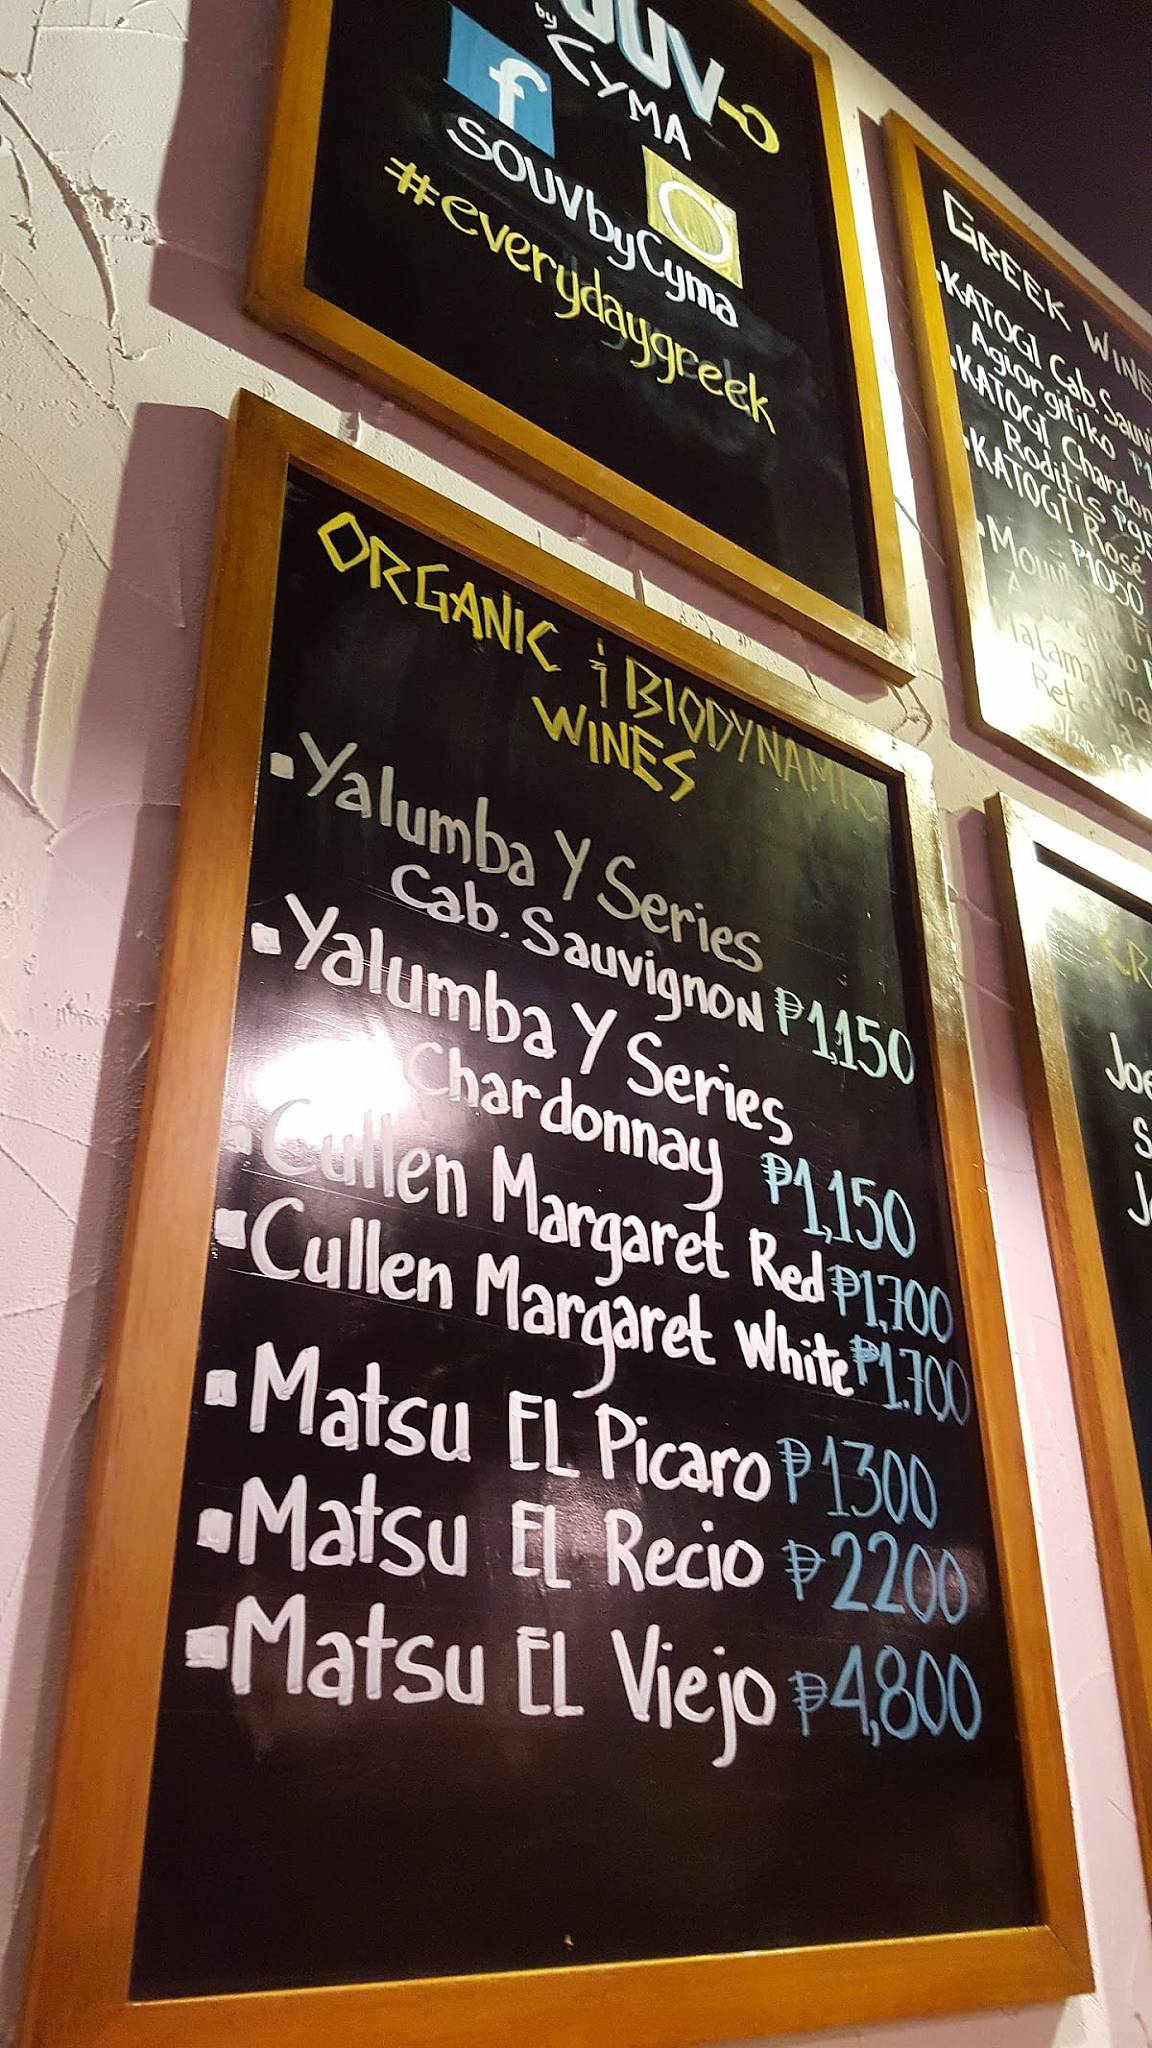 by
CYMA
SOUVbyCyma
#everydaygreek
GREEK
KATOGI Cab.
Agiorgitiko
KATOGI
Roditis
KATOGI Rosé
₱1050
ORGANIC & BIODYNAMIC
WINES
▪Yalumba Y Series
Cab. Sauvignon ₱1,150
▪Yalumba Y Series
Chardonnay ₱1,150
▪Cullen Margaret Red ₱1,700
▪Cullen Margaret White ₱1.700
▪Matsu EL Picaro ₱1300
▪Matsu EL Recio ₱2200
▪Matsu EL Viejo ₱4,800